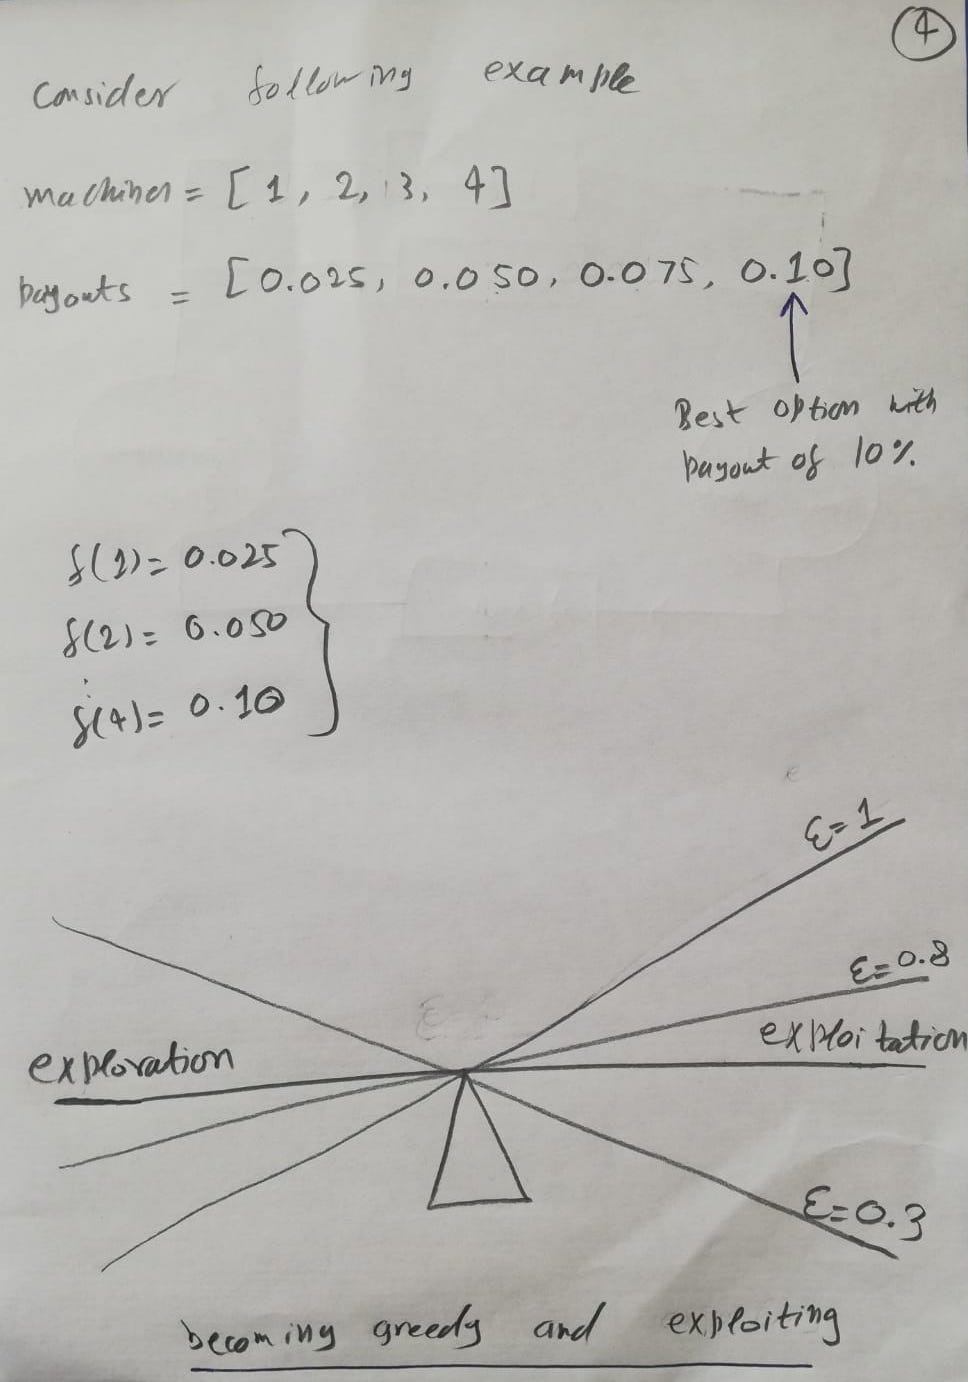 4
Consider following example
machines = [1, 2, 3, 4]
payouts = [0.025, 0.050, 0.075, 0.10]
Best option with
payout of 10%
f(1) = 0.025
f(2) = 0.050
f(4) = 0.10
ε=1
ε=0.8
exploitation
exploration
ε=0.3
becoming greedy and exploiting